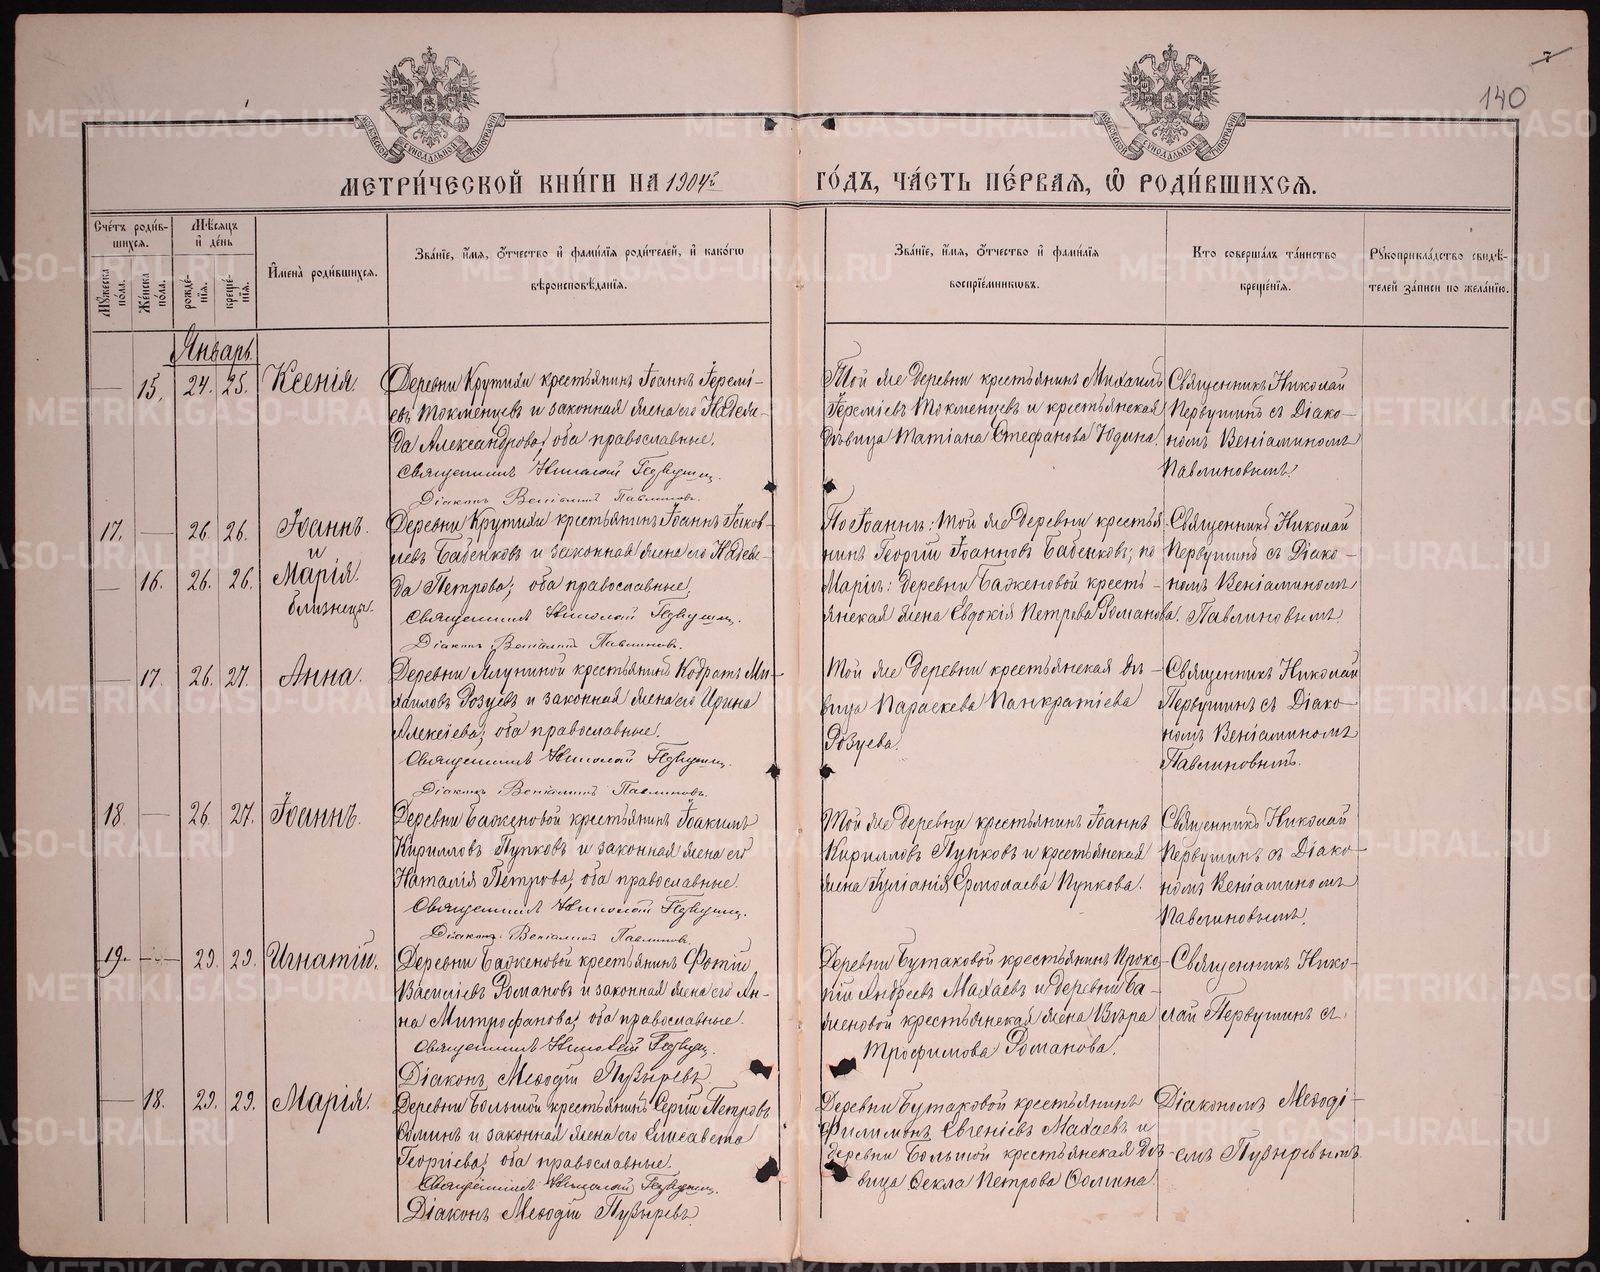 7
140
МЕТРИ́ЧЕСКОЙ КНИ́ГИ НА 1904й
ГО́ДЪ, ЧА́СТЬ ПЕ́РВАѦ, Ѡ҆ РОДИ́ВШИХСѦ.
Сче́тъ роди́в-
шихсѧ.
Мѣ́сѧцъ
и҆ де́нь
Мꙋ́жеска по́ла.
Же́нска по́ла.
рожде́-
нїѧ.
креще́-
нїѧ.
И҆мена̀ роди́вшихсѧ.
Зва́нїе, и҆́мѧ, ѻ҆́тчество и҆ фами́лїѧ роди́телей, и҆ како́гѡ
вѣроисповѣ́данїѧ.
Зва́нїе, и҆́мѧ, ѻ҆́тчество и҆ фами́лїѧ
воспрїе́мникѡвъ.
Кто̀ соверша́лъ та́инство
креще́нїѧ.
Рꙋкоприкла́дство свидѣ́-
телей за́писи по жела́нїю.
Январь
— 15. 24. 25. Ксенія
Деревни Крутихи крестьянинъ Іоаннъ Іеремі-
евъ Токменцевъ и законная жена его Надеж-
да Александрова, оба православные.
Священникъ Николай Первушин.
Діаконъ Веніаминъ Павлиновъ.
Той же деревни крестьянинъ Михаилъ
Іереміевъ Токменцевъ и крестьянская
дѣвица Татіана Стефанова Юдина.
Священникъ Николай
Первушинъ съ Діако-
номъ Веніаминомъ
Павлиновымъ.
17. — 26. 26. Іоаннъ.
и
— 16. 26. 26. Марія.
близнецы.
Деревни Крутихи крестьянинъ Іоаннъ Іаков-
левъ Бабенковъ и законная жена его Надеж-
да Петрова; оба православные,
Священникъ Николай Первушин.
Діаконъ Веніаминъ Павлиновъ.
По Іоаннѣ: той же деревни крестья-
нинъ Георгій Іоанновъ Бабенковъ; по
Маріи: деревни Баженовой кресть-
янская жена Евдокія Петрова Романова.
Священникъ Николай
Первушинъ съ Діако-
номъ Веніаминомъ
Павлиновымъ.
— 17 26. 27. Анна.
Деревни крестьянинъ Кодратъ Ми-
хаиловъ Розуевъ и законная жена его Ирина
Алексіева; оба православные.
Священникъ Николай Первушин.
Діаконъ Веніаминъ Павлиновъ.
Той же деревни крестьянская дѣ-
вица Параскева Панкратіева
Розуева.
Священникъ Николай
Первушинъ съ Діако-
номъ Веніаминомъ
Павлиновымъ.
18. — 26. 27. Іоаннъ.
Деревни Баженовой крестьянинъ Іоакимъ
Кирилловъ Пупковъ и законная жена его
Наталія Петрова, оба православные.
Священникъ Николай Первушин.
Діаконъ Веніаминъ Павлиновъ.
Той же деревни крестьянинъ Іоаннъ
Кирилловъ Пупковъ и крестьянская
жена Іуліанія Ермолаева Пупкова.
Священникъ Николай
Первушинъ съ Діако-
номъ Веніаминомъ
Павлиновымъ.
19. — 29. 29. Игнатій.
Деревни Баженовой крестьянинъ Фотій
Василіевъ Романовъ и законная жена его Ан-
на Митрофанова; оба православные.
Священникъ Николай Первушин.
Діаконъ Меѳодій Пузыревъ
Деревни Бутаковой крестьянинъ Проко-
пій Андреевъ Махаевъ и деревни Ба-
женовой крестьянская жена Вѣра
Трофимова Романова.
Священникъ Нико-
лай Первушинъ съ
— 18. 29. 29. Марія.
Деревни Большой крестьянинъ Сергій Петровъ
Ѳоминъ и законная жена его Елисавета
Георгіева; оба православные.
Священникъ Николай Первушин.
Діаконъ Меѳодій Пузыревъ
Деревни Бутаковой крестьянинъ
Филимонъ Евгеніевъ Махаевъ и
деревни Большой крестьянская дѣ-
вица Ѳекла Петрова Ѳомина.
Діакономъ Меѳоді-
емъ Пузыревымъ.
METRIKI.GASO-URAL.RU